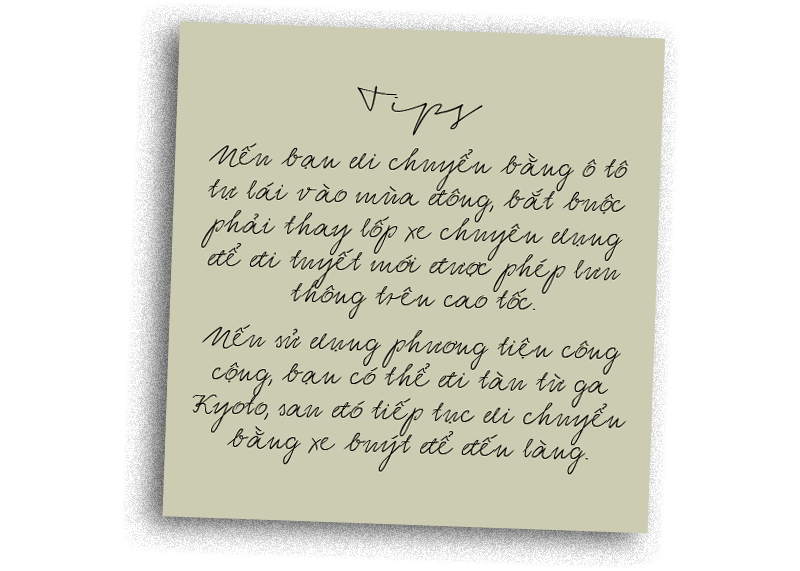 Tips
Nếu bạn di chuyển bằng ô tô
tự lái vào mùa đông, bắt buộc
phải thay lốp xe chuyên dụng
để đi tuyết mới được phép lưu
thông trên cao tốc.
Nếu sử dụng phương tiện công
cộng, bạn có thể đi tàu từ ga
Kyoto, sau đó tiếp tục di chuyển
bằng xe buýt để đến làng.